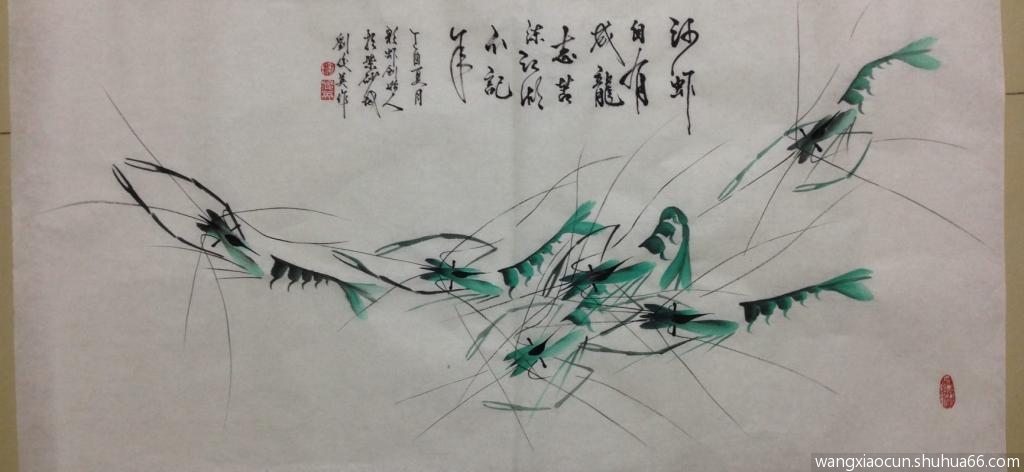 河虾
自有
成龍
志苦
染江湖
不記
年
丁酉夏月
彩虾创始人
於紫砂城
劉文英作
wangxiaocun.shuhua66.com